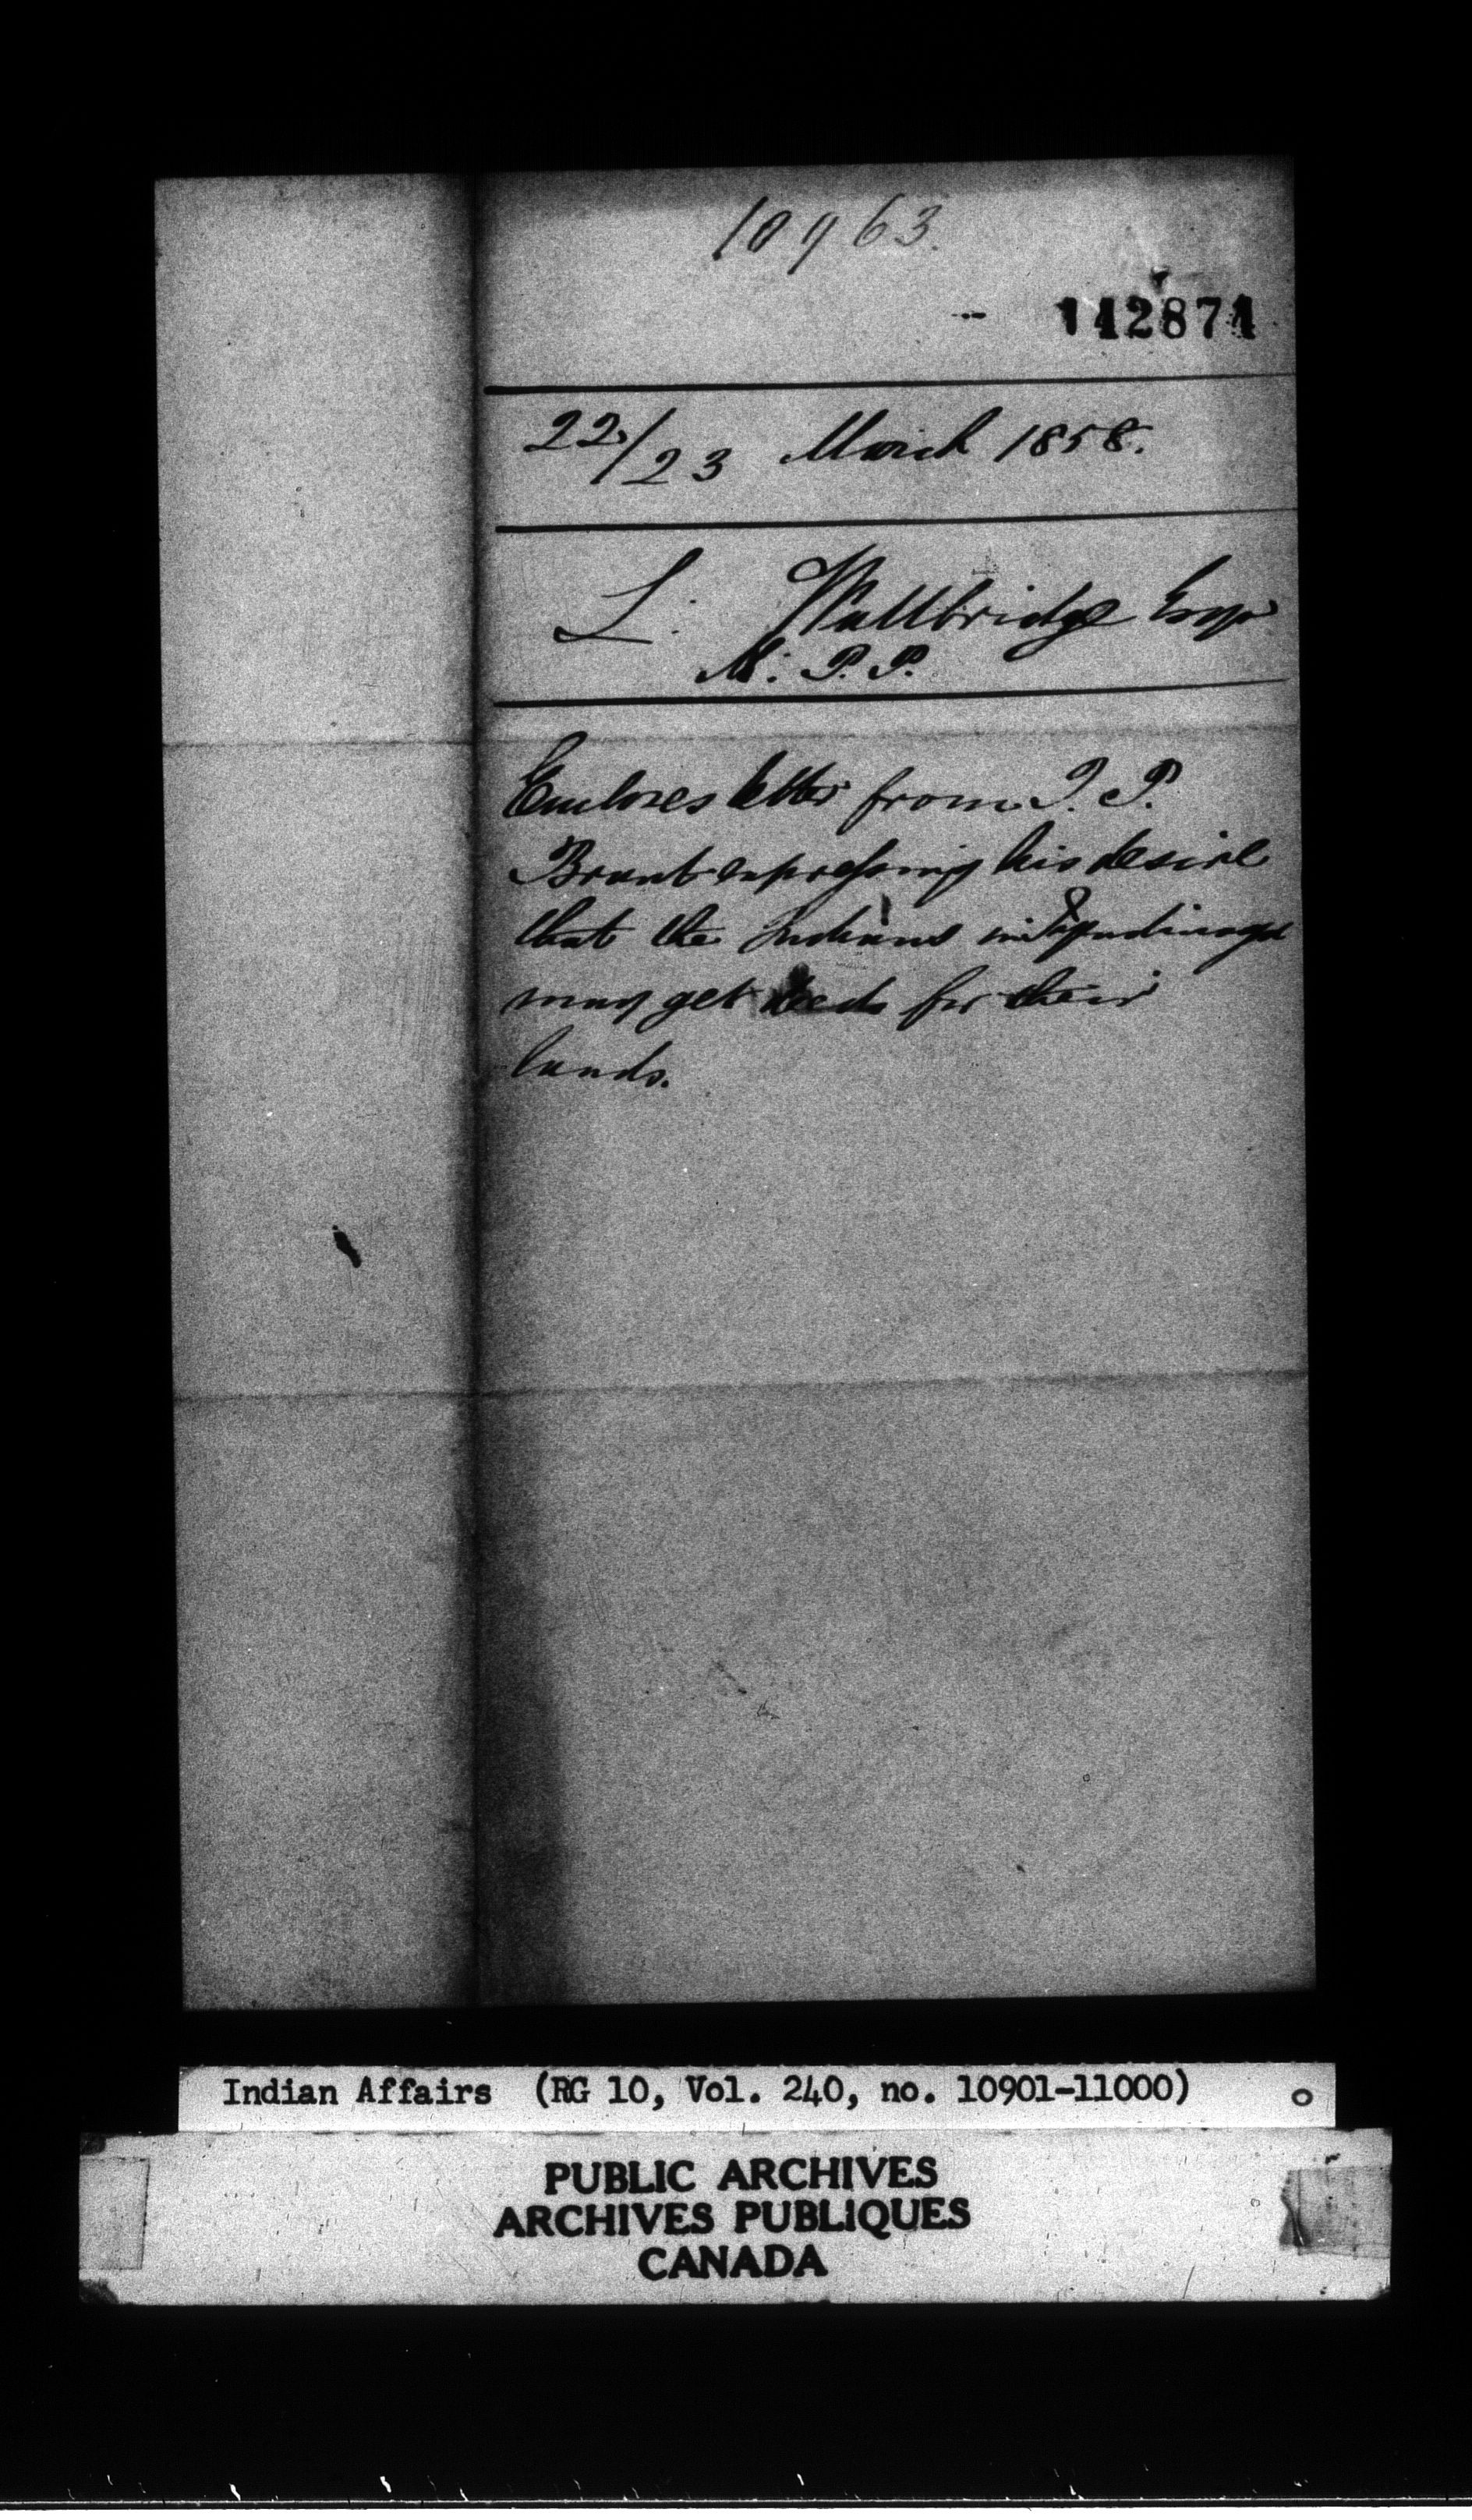 10963.
142871
22/23 March 1858.
L. Wallbridge Esqr
M. P. P.
Encloses letter from J. P.
Brant expressing his desire
that the Indians in Tyendinaga
may get deeds for their
lands.
Indian Affairs (RG 10, Vol. 240, no. 10901-11000)
PUBLIC ARCHIVES
ARCHIVES PUBLIQUES
CANADA